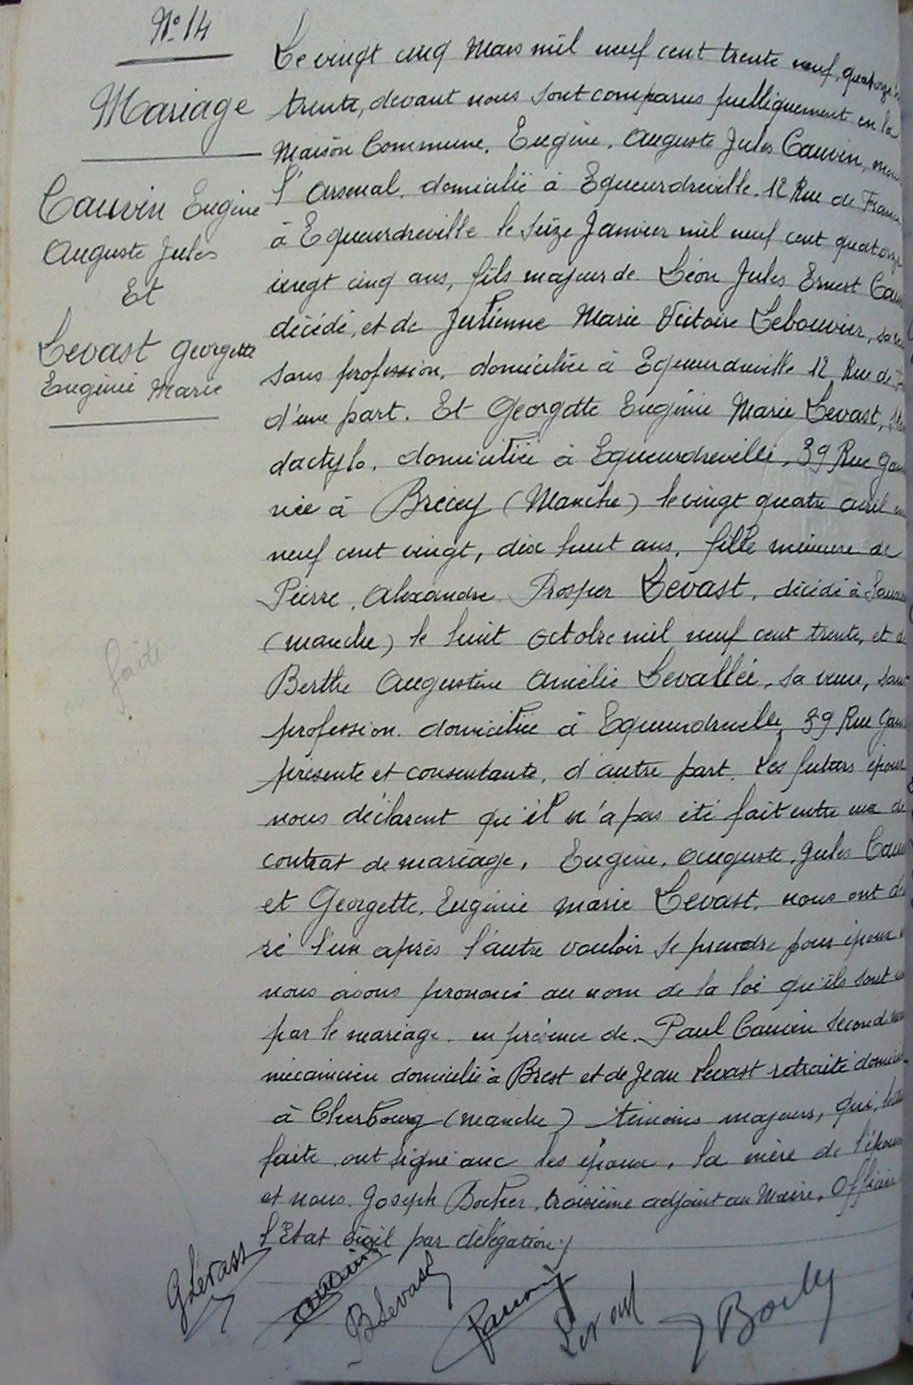 N° 14
Mariage
Cauvin Eugène
Auguste Jules
Et
Levast Georgette
Eugénie Marie
Le vingt cinq Mars mil neuf cent trente neuf, quatorze
trente, devant nous sont comparus publiquement en la
Maison Commune, Eugène, Auguste Jules Cauvin,
l'Arsenal, domicilié à Equeurdreville, 12 Rue de France
à Equeurdreville le Seize Janvier mil neuf cent quatorze
vingt cinq ans, fils majeur de Léon Jules Ernest Cau
décédé, et de Julienne Marie Victoire Lebouvier, sa
sans profession, domiciliée à Equeurdreville 12 Rue de
d'une part. Et Georgette Eugénie Marie Levast,
dactylo, domiciliée à Equeurdreville, 39 Rue Gam
née à Brécey (Manche) le vingt quatre avril
neuf cent vingt, dix huit ans, fille mineure de
Pierre, Alexandre Prosper Levast, décédé à
(Manche) le huit Octobre mil neuf cent trente, et
Berthe Augustine Amélie Levallée, sa veuve, sans
profession, domiciliée à Equeurdreville, 39 Rue Gam
présente et consentante, d'autre part. Les futurs époux
nous déclarent qu'il n'a pas été fait entre eux de
contrat de mariage, Eugène, Auguste, Jules Cau
et Georgette, Eugénie Marie Levast, nous ont dé
ré l'un après l'autre vouloir se prendre pour époux
nous avons prononcé au nom de la loi qu'ils sont
par le mariage, en présence de Paul Cauvin Second
mécanicien domicilié à Brest et de Jean Levast retraité domici
à Cherbourg (Manche) témoins majeurs, qui,
faite, ont signé avec les époux, la mère de l'épouse
et nous, Joseph Bocher, troisième adjoint au Maire, Officier
l'Etat Civil par délégation./
faite
GLevast
Cauvin
BLevast